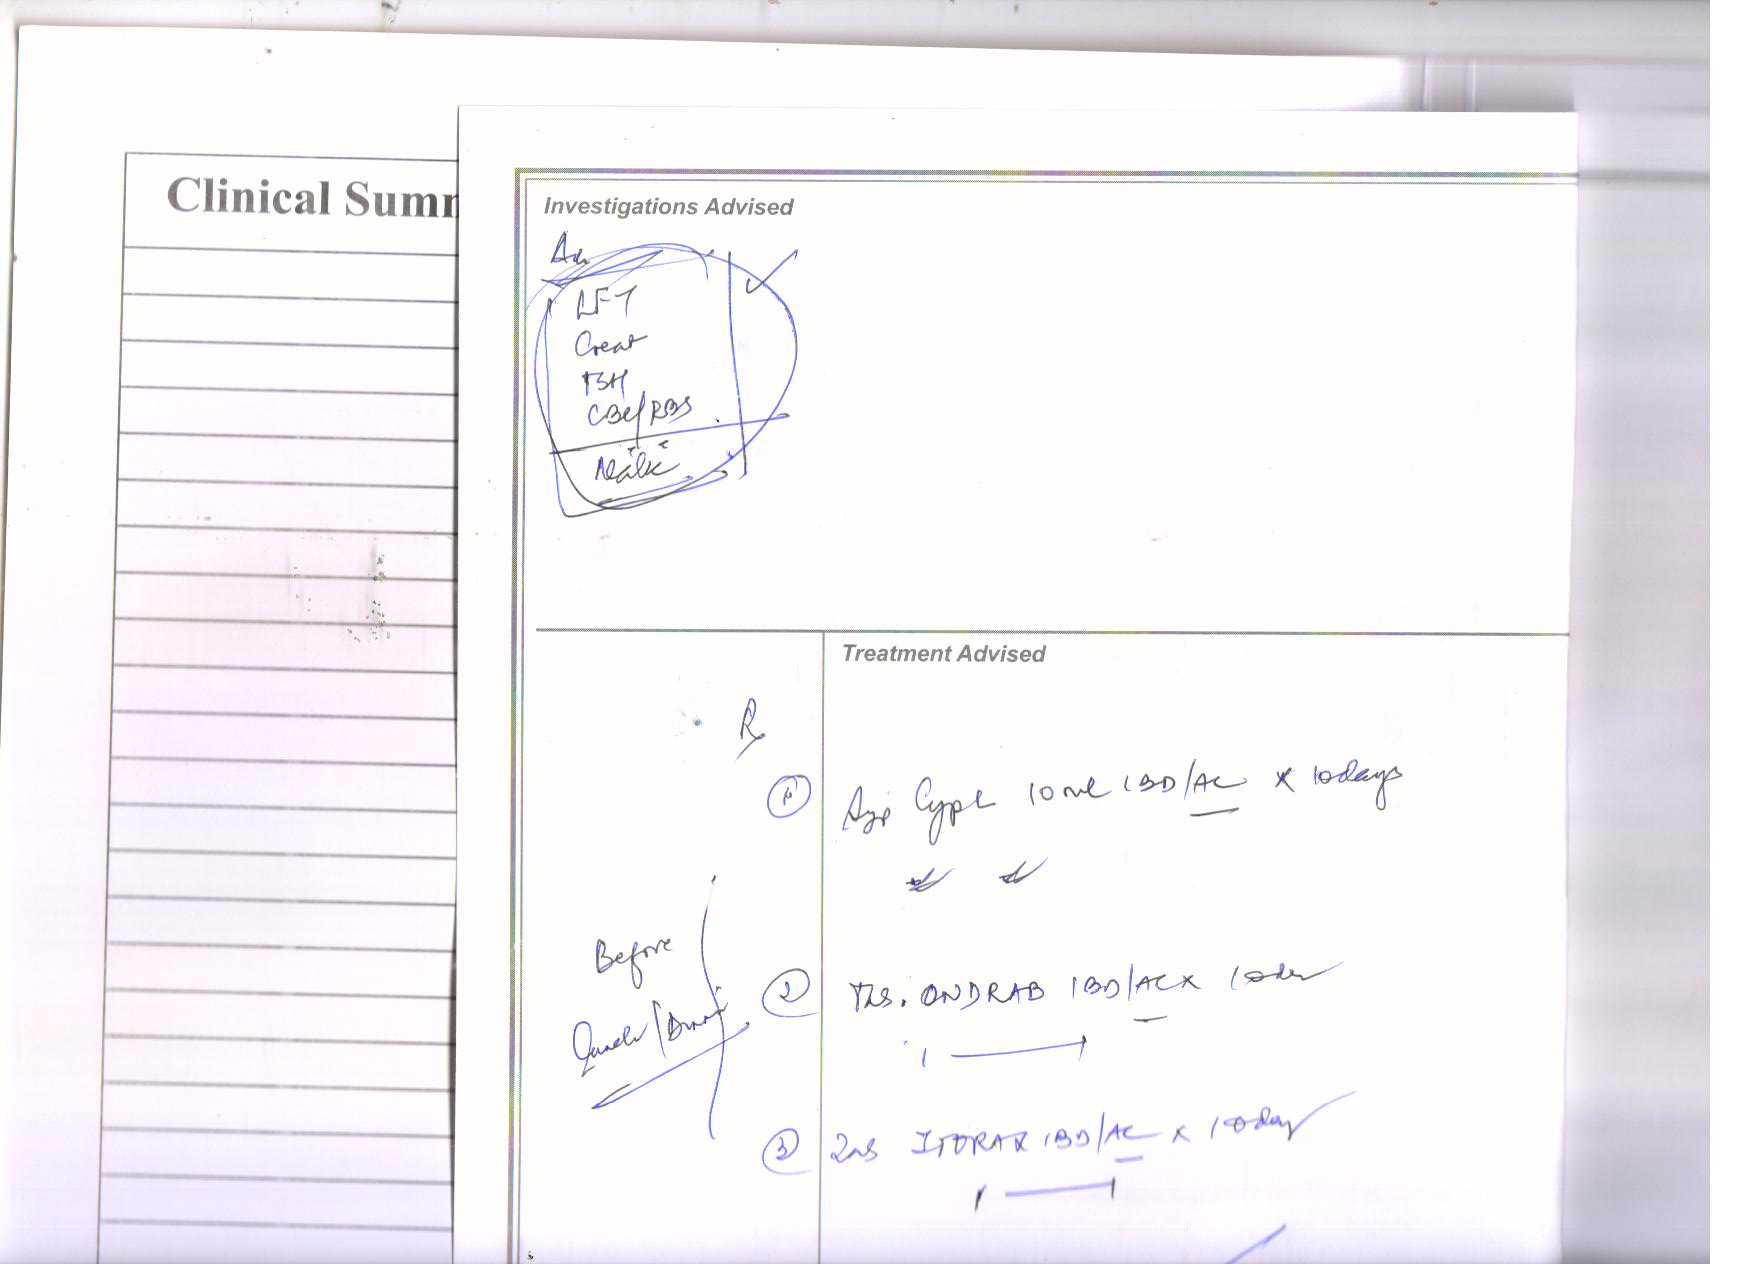 Clinical Summ
Investigations Advised
LFT
Creat
TSH
CBC/RBS
Treatment Advised
Rx
1 10 ml 1BD/AC x 10 days
Before
2 Tab. ONDRAB 1BD/AC x 10 day
3 ITORAX 1BD/AC x 10 day